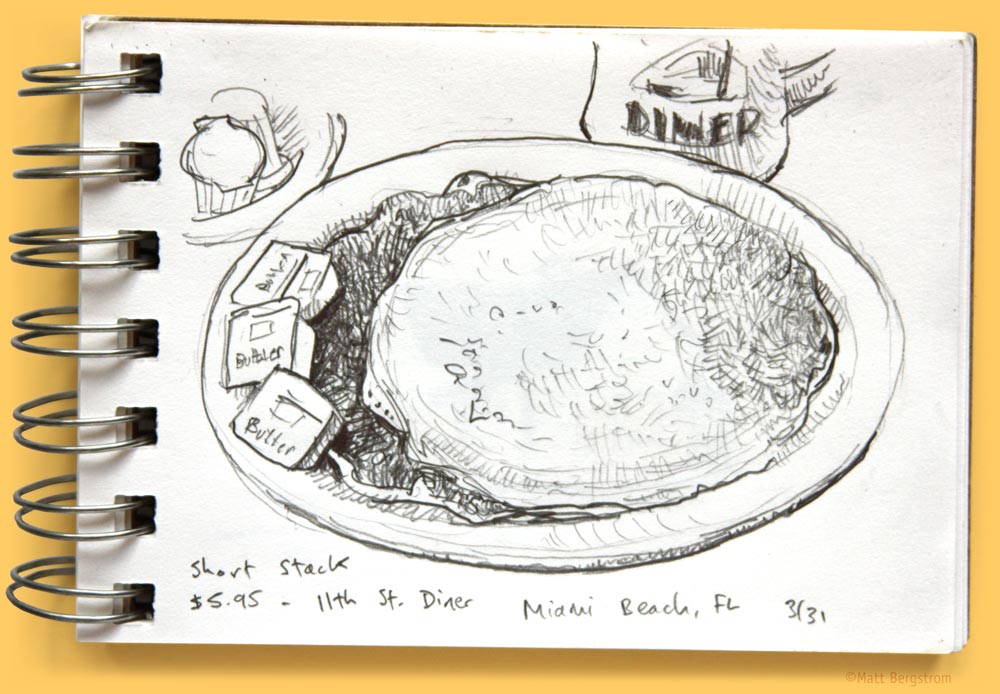 DINER
Butter
Butter
Butter
Short Stack
$5.95 - 11th St. Diner Miami Beach, FL 3/31
©Matt Bergstrom